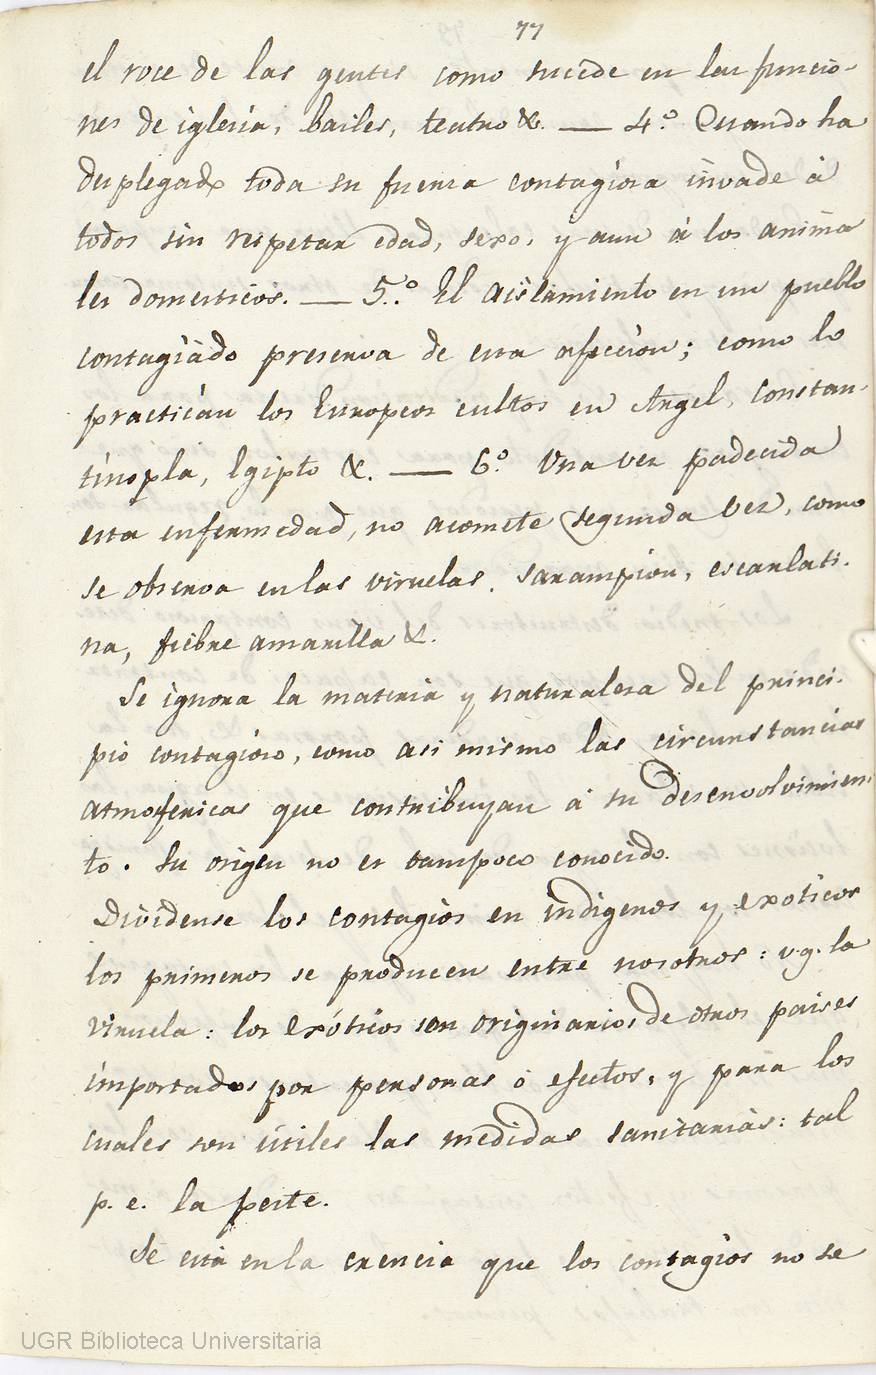 77
el roce de las gentes como sucede en las funcio-
nes de iglesia, bailes, teatro &. — 4.º Cuando ha
desplegado toda su fuerza contagiosa invade á
todos sin respetar edad, sexo, y aun á los anima
les domesticos. — 5.º El aislamiento en un pueblo
contagiado preserva de esta afeccion; como lo
practican los Europeos cultos en Argel, Constan-
tinopla, Egipto &. — 6.º Una vez padecida
esta enfermedad, no acomete segunda vez, como
se observa en las viruelas, sarampion, escarlati-
na, fiebre amarilla &.
Se ignora la materia y naturalesa del princi-
pio contagioso, como asi mismo las circunstancias
atmosfericas que contribuyan á su desenvolvimien
to. Su origen no es tampoco conocido.
Dividense los contagios en indigenos y exoticos
los primeros se producen entre nosotros: v.g. la
viruela: los exóticos son originarios de otros paises
importados por personas ó efectos, y para los
cuales son útiles las medidas sanitarias: tal
p. e. la peste.
Se está en la crencia que los contagios no se
UGR Biblioteca Universitaria